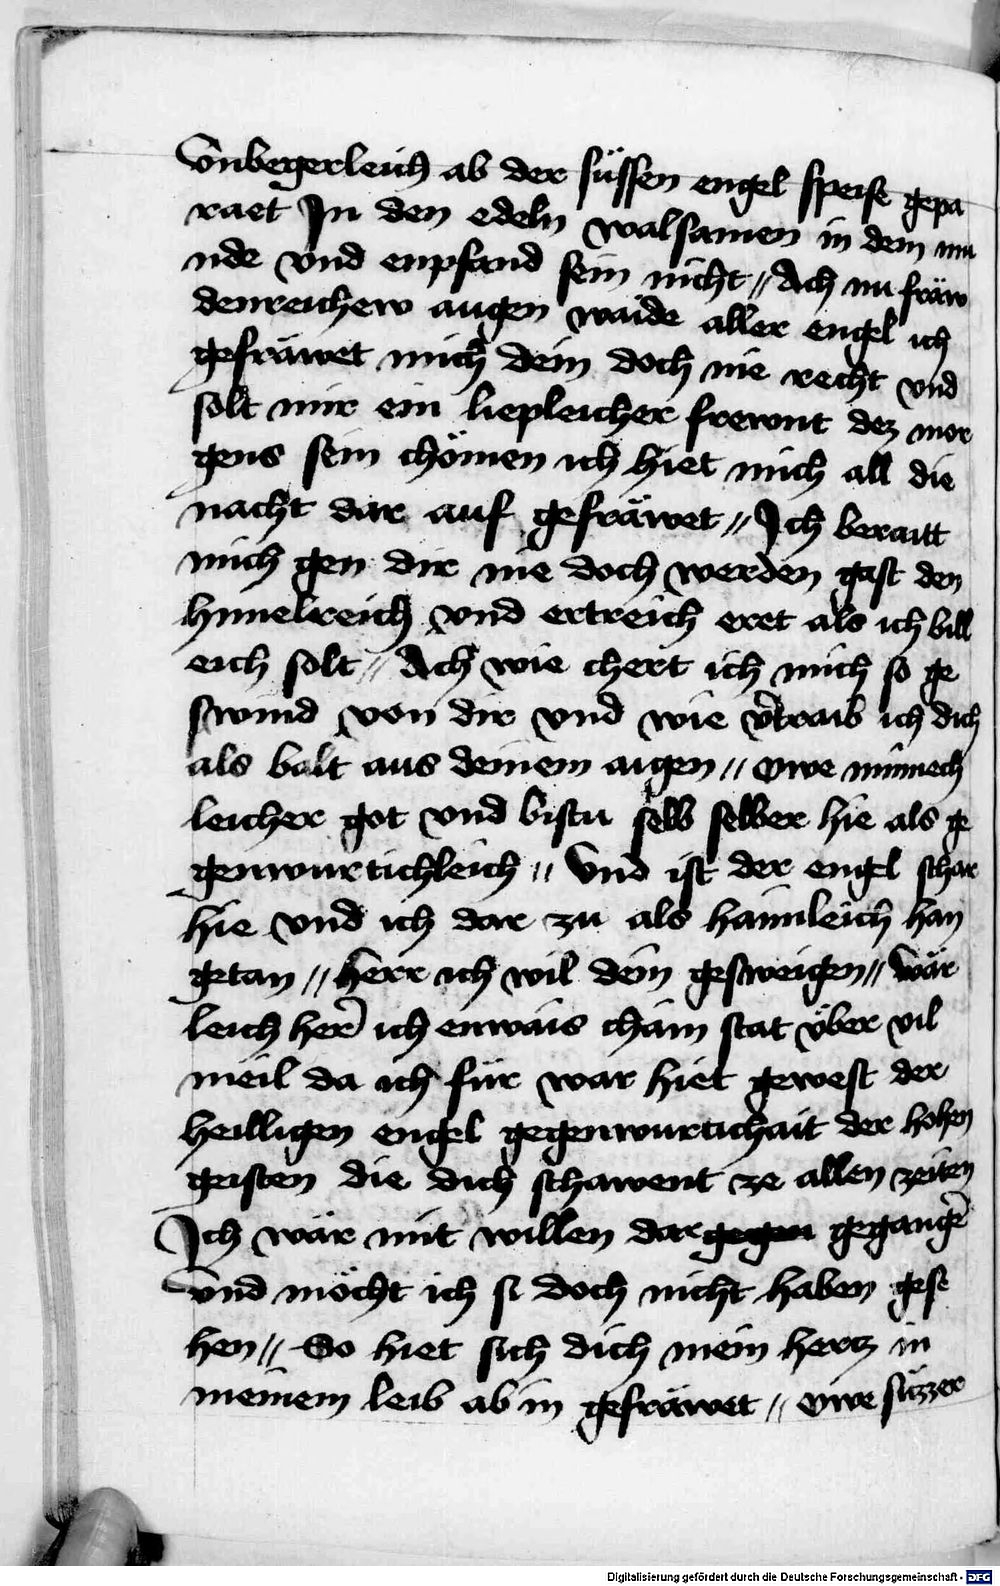 Vnbegerleich ab der süssen engel speise gepa
raet Jn den edeln walsamen in dem mu
nde vnd enpfand sein nicht // Ach nu fräw
denreichew augen waide aller engel ich
gefräwet mich dein doch nie recht vnd
solt mir ein liepleicher frewnt dez mor
gens sein chömen ich hiet mich all die
nacht dar auf gefräwet // Jch beraitt
mich gen dir nie doch werden gast den
himelreich vnd ertreich eret als ich bill
eich solt // Ach wie chert ich mich so ge
swind von dir vnd wie v̓traib ich dich
als balt aus deinem augen // Owe minnech
leicher got vnd bistu selb selber hie als ge
genwurtichleich // Vnd ist der engel schar
hie vnd ich dar zu als haimleich han
getan // herr ich wil dein gesweigen // wär
leich her̓ ich enwais chain stat vͤber vil
meil da ich für war hiet gewest der
heilligen engel gegenwurtichait der hohen
geisten die dich schawent ze allen zeiten
Jch wär mit willen dar gegen gegange̓
vnd möcht ich si doch nicht haben gese
hen // So hiet sich dich mein hertz in
meinem leib ab in gefräwet // Owe süzzer
Digitalisierung gefördert durch die Deutsche Forschungsgemeinschaft - DFG